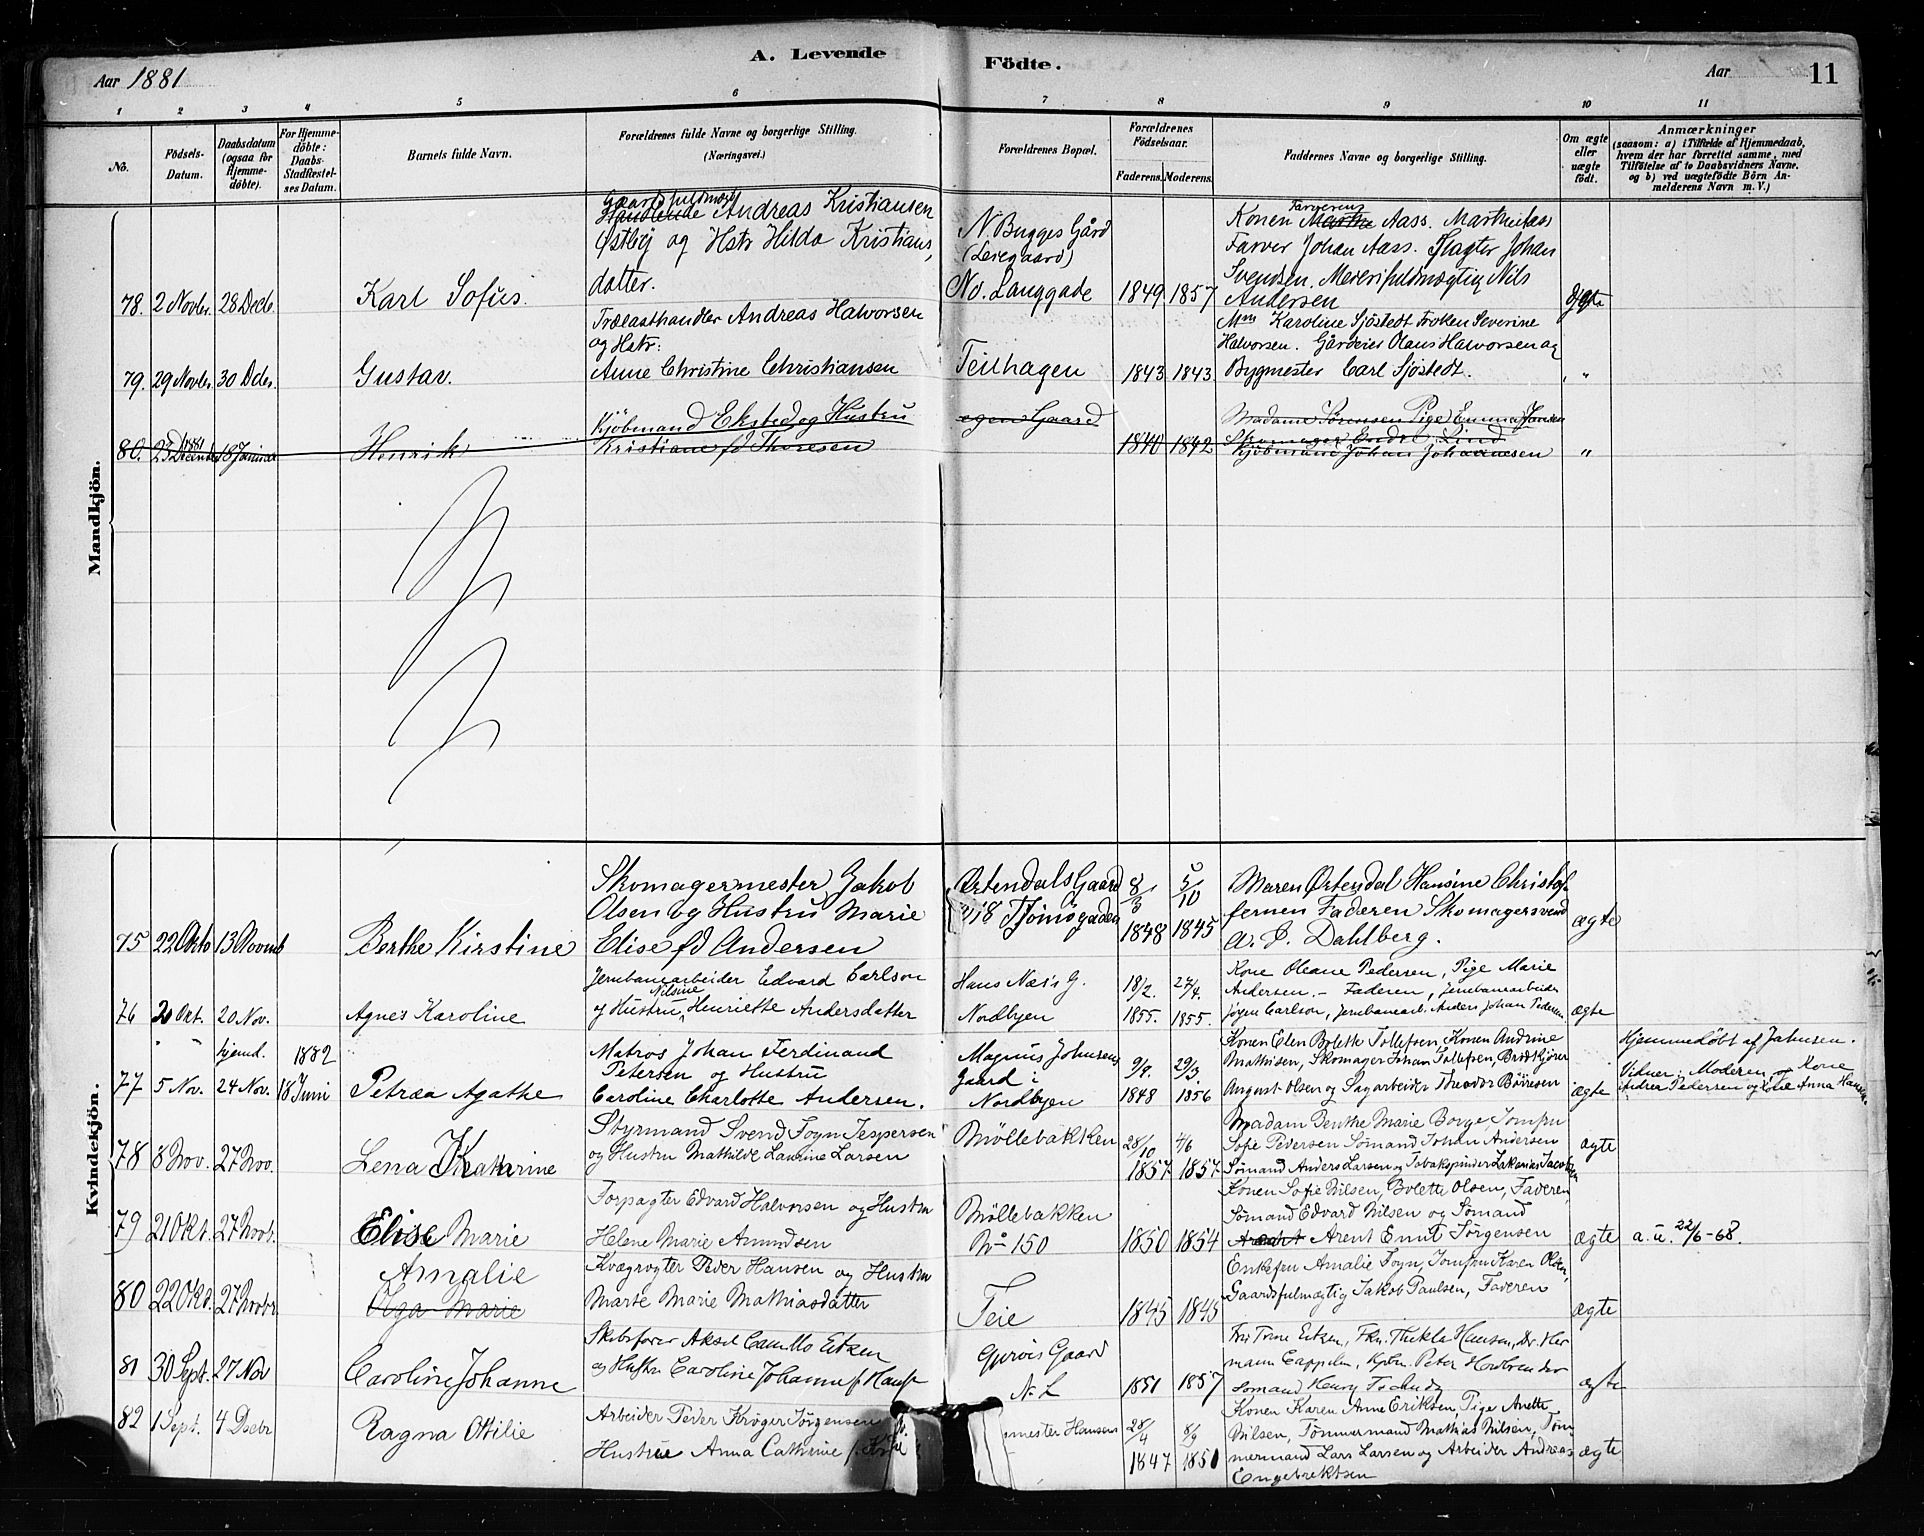 A. Levende Födte.
Aar 1881
Aar
11
1 2 3 4 5 6 7 8 9 10 11
No.
Födsels-Datum.
Daabsdatum (ogsaa for Hjemmedöbte).
For Hjemmedöbte: Daabs-Stadfæstelses Datum.
Barnets fulde Navn.
Forældrenes fulde Navne og borgerlige Stilling. (Næringsvei.)
Forældrenes Bopæl.
Forældrenes Födselsaar.
Faderens. Moderens.
Faddernes Navne og borgerlige Stilling.
Om ægte eller uægte födt.
Anmærkninger
(saasom: a) i Tilfælde af Hjemmedaab, hvem der har forrettet samme, med Tilföielse af to Daabsvidners Navne, og b) ved uægtefödte Börn Anmelderens Navn m. V.)
Mandkjön.
Gaardsfuldmægt
Handlende Andreas Kristiansen
Østby og Hstr Hilda Kristians
datter.
N. Bugges Gård
(Leiegaard)
No. Langgade
Farverens
Konen Martha Aass. Marthe Aass
Farver Johan Aass. Slagter Johan
Svendsen. Meierifuldmægtig Nils
Andersen
78. 2 Novbr. 28 Decb. Karl Sofus. 1849 1857 Ægte
Trælasthandler Andreas Halvorsen
og Hstr:
Anne Christine Christiansen
Mm Karoline Sjöstedt Frøken Severine
Halvorsen. Gårdeier Olaus Halvorsen og
Bygmester Carl Sjöstedt.
79. 29 Novbr. 30 Dcbr. Gustav. Teilhagen 1843 1843 "
Kjöbmand Eksted og Hustru
Kristiane fd Thoresen
egen Gaard
Madame Sörensen Pige Emma Jansen
Skomager Endre Lind
Kjöbmand Johan Johannesen
80. 23 Decembr 1881 18 Januar Henrik 1840 1842 "
Kvindekjön.
Skomagermester Jakob
Olsen og Hustru Marie
Elise fd Andersen
Ørtendals Gaard
Tjømøgaden
8/3 1848 5/10 1845
Maren Ørtendal Hansine Christof
fersen Faderen Skomagersvend
A. P. Dahlberg.
75 22 Okto 13 Novmb Berthe Kirstine ægte
Jernbanearbeider Edvard Carlson
Nilsine
og Hustru Henriette Andersdatter
Hans Næs's G.
Nordbyen
18/2. 1855. 27/4. 1855.
Kone Oleane Pedersen, Pige Marie
Andersen. - Faderen, Jernbanearbeider
Jörgen Carlson, Jernbanearb. Anders Johan Pedersen
76 2 Okt. 20 Nov. Agnes Karoline ægte
hjemd. 1882
Matros Johan Ferdinand
Petersen og Hustru
Caroline Charlotte Andersen.
Magnus Johnsens
Gaard i
Nordbyen
9/8. 1848 29/3 1856
Konen Elen Bolette Tollefsen, Konen Andrine
Mathisen, Skomager Johan Tollefsen, Brödkjörer
August Olsen og Sagarbeider Theodor Böiresen
Hjemmedöbt af Jahnsen.
Vidner: Moderen og Kone
Andrea Pedersen og Kone Anna Hansen.
77 5 Nov. 24 Nov. 18 Juni Petræa Agathe ægte
Styrmand Svend Foyn Jespersen
og Hustru Mathilde Laurine Larsen
Möllebakken
28/10 1857 4/6 1857
Madam Benthe Marie Borge Jomfru
Sofie Pedersen Sömand Johan Andersen
Sömand Anders Larsen og Tobakspinder Zakarias Jacobsen
78 8 Nov. 27 Nov. Lena Katharine ægte
Forpagter Edvard Halvorsen og Hustru
Helene Marie Amundsen
Möllebakken
No 150
Konen Sofie Nilsen, Bolette Olsen, Faderen,
Sömand Edvard Nilsen og Sömand
Arent Emil Jörgensen
79 21 Okt. 27 Novb. Elise Marie 1850 1854 ægte a. u. 22/6-68.
Amalie
Kvægrogter Peder Hansen og Hustru
Marie Marie Mathiasdatter
Enkefru Amalie Foyn, Jomfru Karen Olsen,
Gaardsfulmægtig Jakob Paulsen, Faderen
80 22 Okt. 27 Novbr Olga Marie Teie 1845 1845 ægte
Skibsfører Aksel Camillo Eitzen
og Hustru Caroline Johanne f. Hauff
Gjervis Gaard
N. L
Fru Trine Eitzen, Frk. Thekla Hansen, Dr. Her
mann Cappelen, Kjøbm. Peter
Sömand Henry
81 30 Sept. 27 Nov Caroline Johanne 1851 1857 ægte
Arbeider Peder Kröger Jörgensen
Hustrue Anna Cathrine f.
mester Hansens
28/4 1847 8/9 1851
Konen Karen Anne Eriksen Pige Anette
Nilsen, Tömmermand Mathias Nilsen, Töm
mermand Lars Larsen og Arbeider Andreas
Engebrektsen
82 1 Sept. 4 Decbr Ragna Otilie ægte